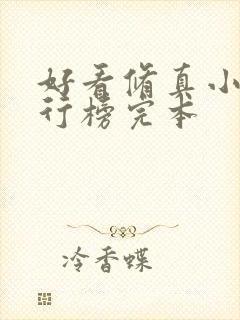 好看修真小
行榜完本
冷香蝶